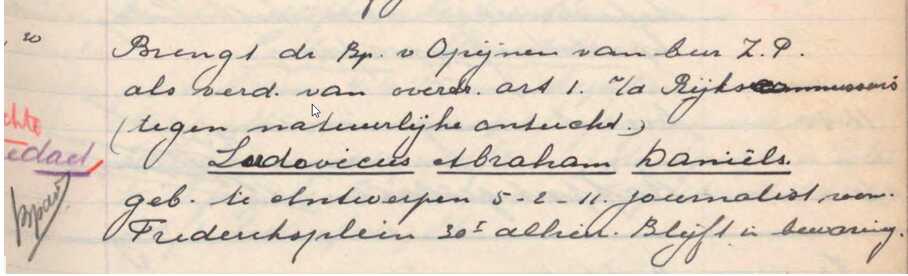 , 20
Brengt de Bp. v Opijnen van bur Z.P.
als verd. van overtr. art 1. v/d Rijkscommissaris
(tegen natuurlijke ontucht.)
Ludovicus Abraham Daniëls.
geb. te Antwerpen 5-2-11. journalist won.
Frederiksplein 30 I alhier. Blijft in bewaring.
chte
edact,